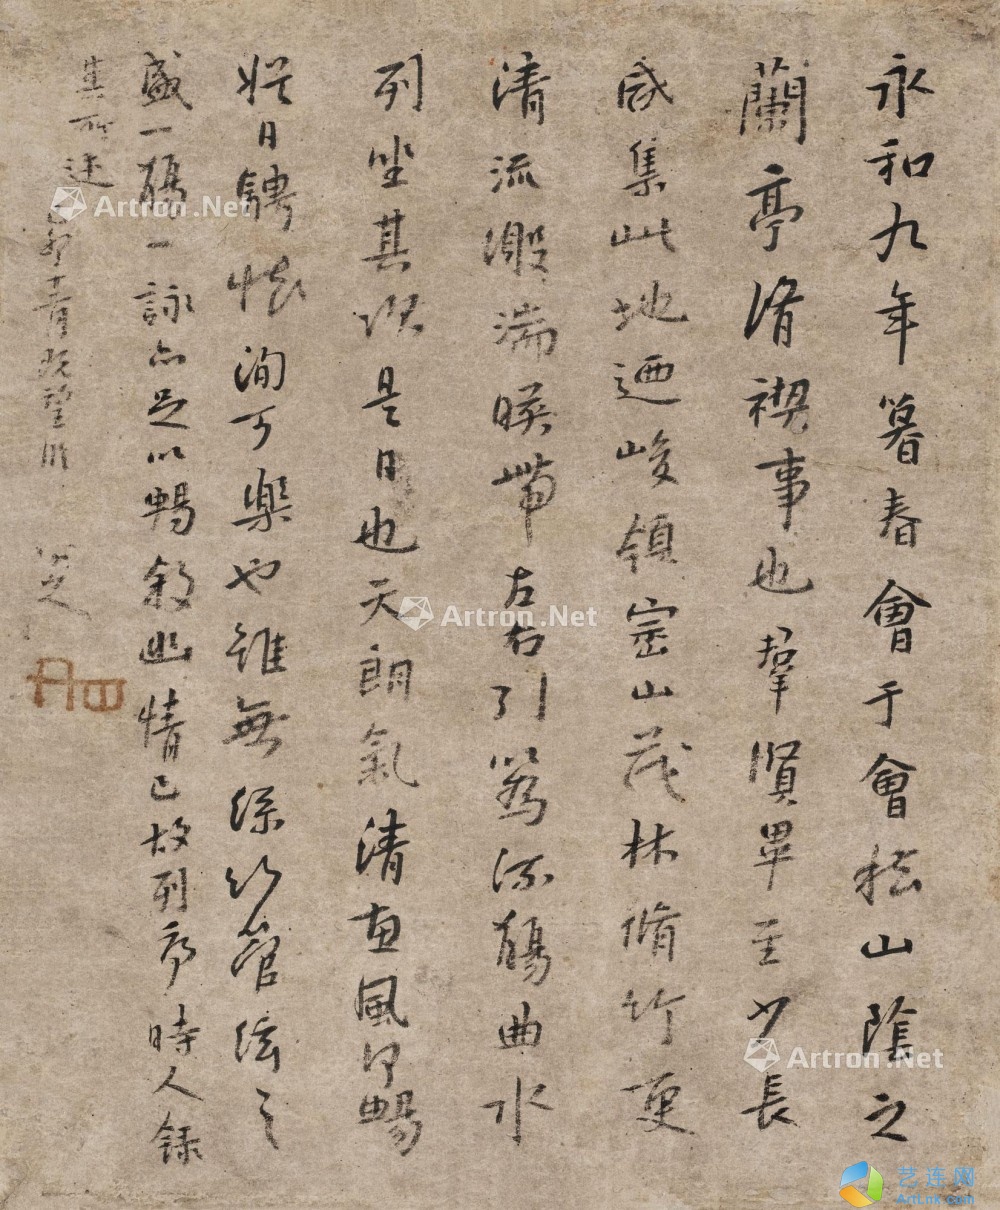 永和九年暮春會于會稽山陰之
蘭亭脩禊事也羣賢畢至少長
咸集此地迺峻領崇山茂林脩竹更
清流激湍暎帶左右引為流觴曲水
列坐其次是日也天朗氣清惠風和暢
娛日騁懷洵可樂也雖無絲竹管絃之
盛一觴一詠亦足以暢敘幽情已故列序時人錄
其所述
己卯 既望
八大山人
Artron.Net
Artron.Net
Artron.Net
Artron.Net
艺连网
ArtLnk.com